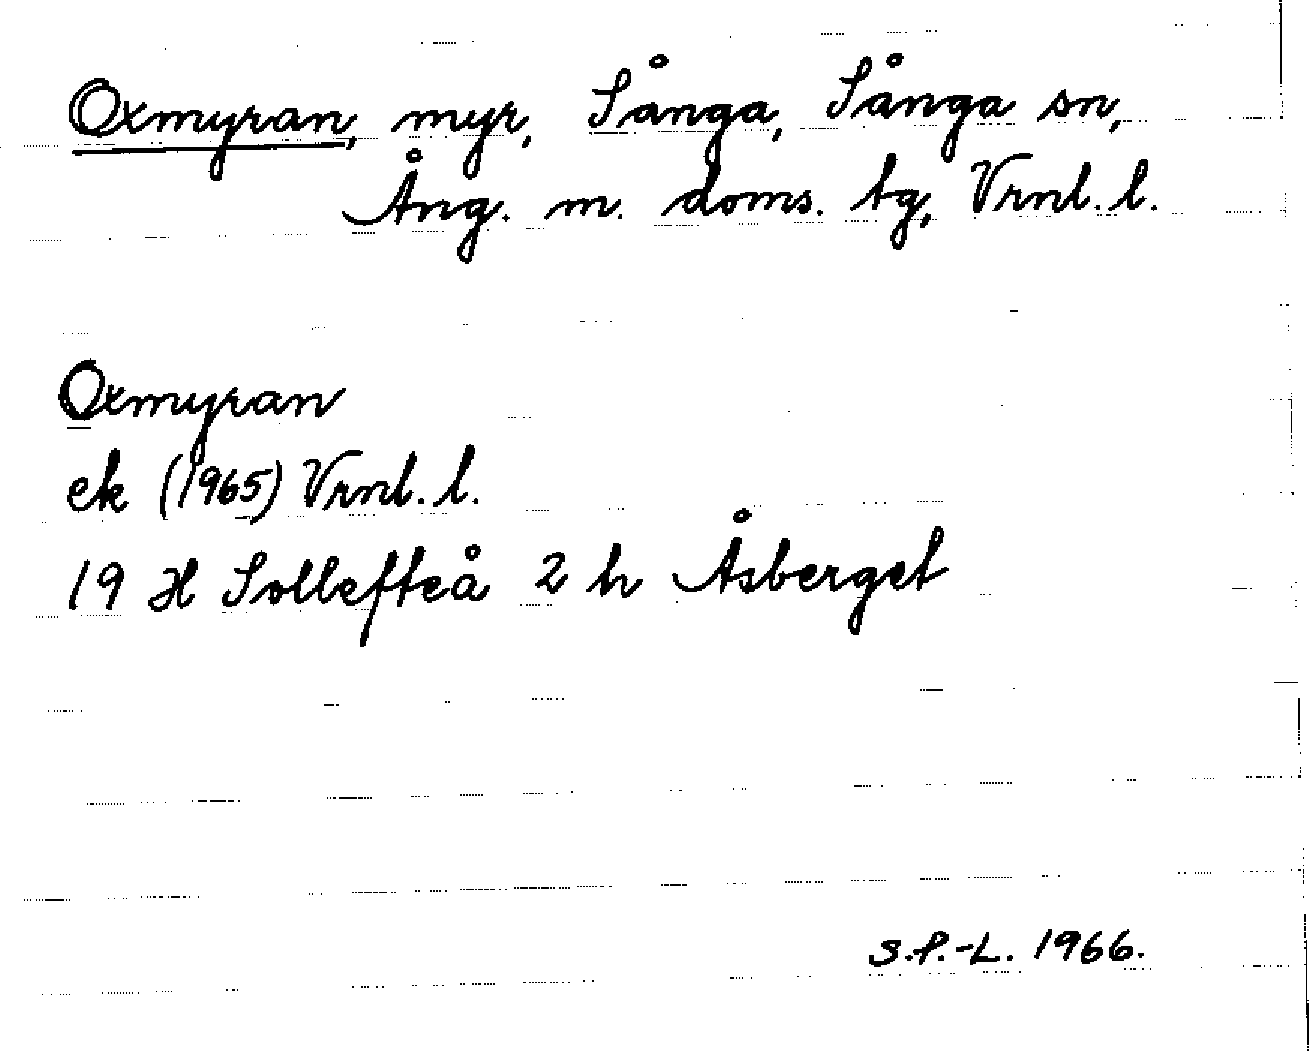 Oxmyran, myr, Sånga, Sånga sn,
Ång. m. doms. tg, Vrnl. l.
Oxmyran
ek (1965) Vrnl. l.
19 H Sollefteå 2 h Åsberget
S.P.-L. 1966.